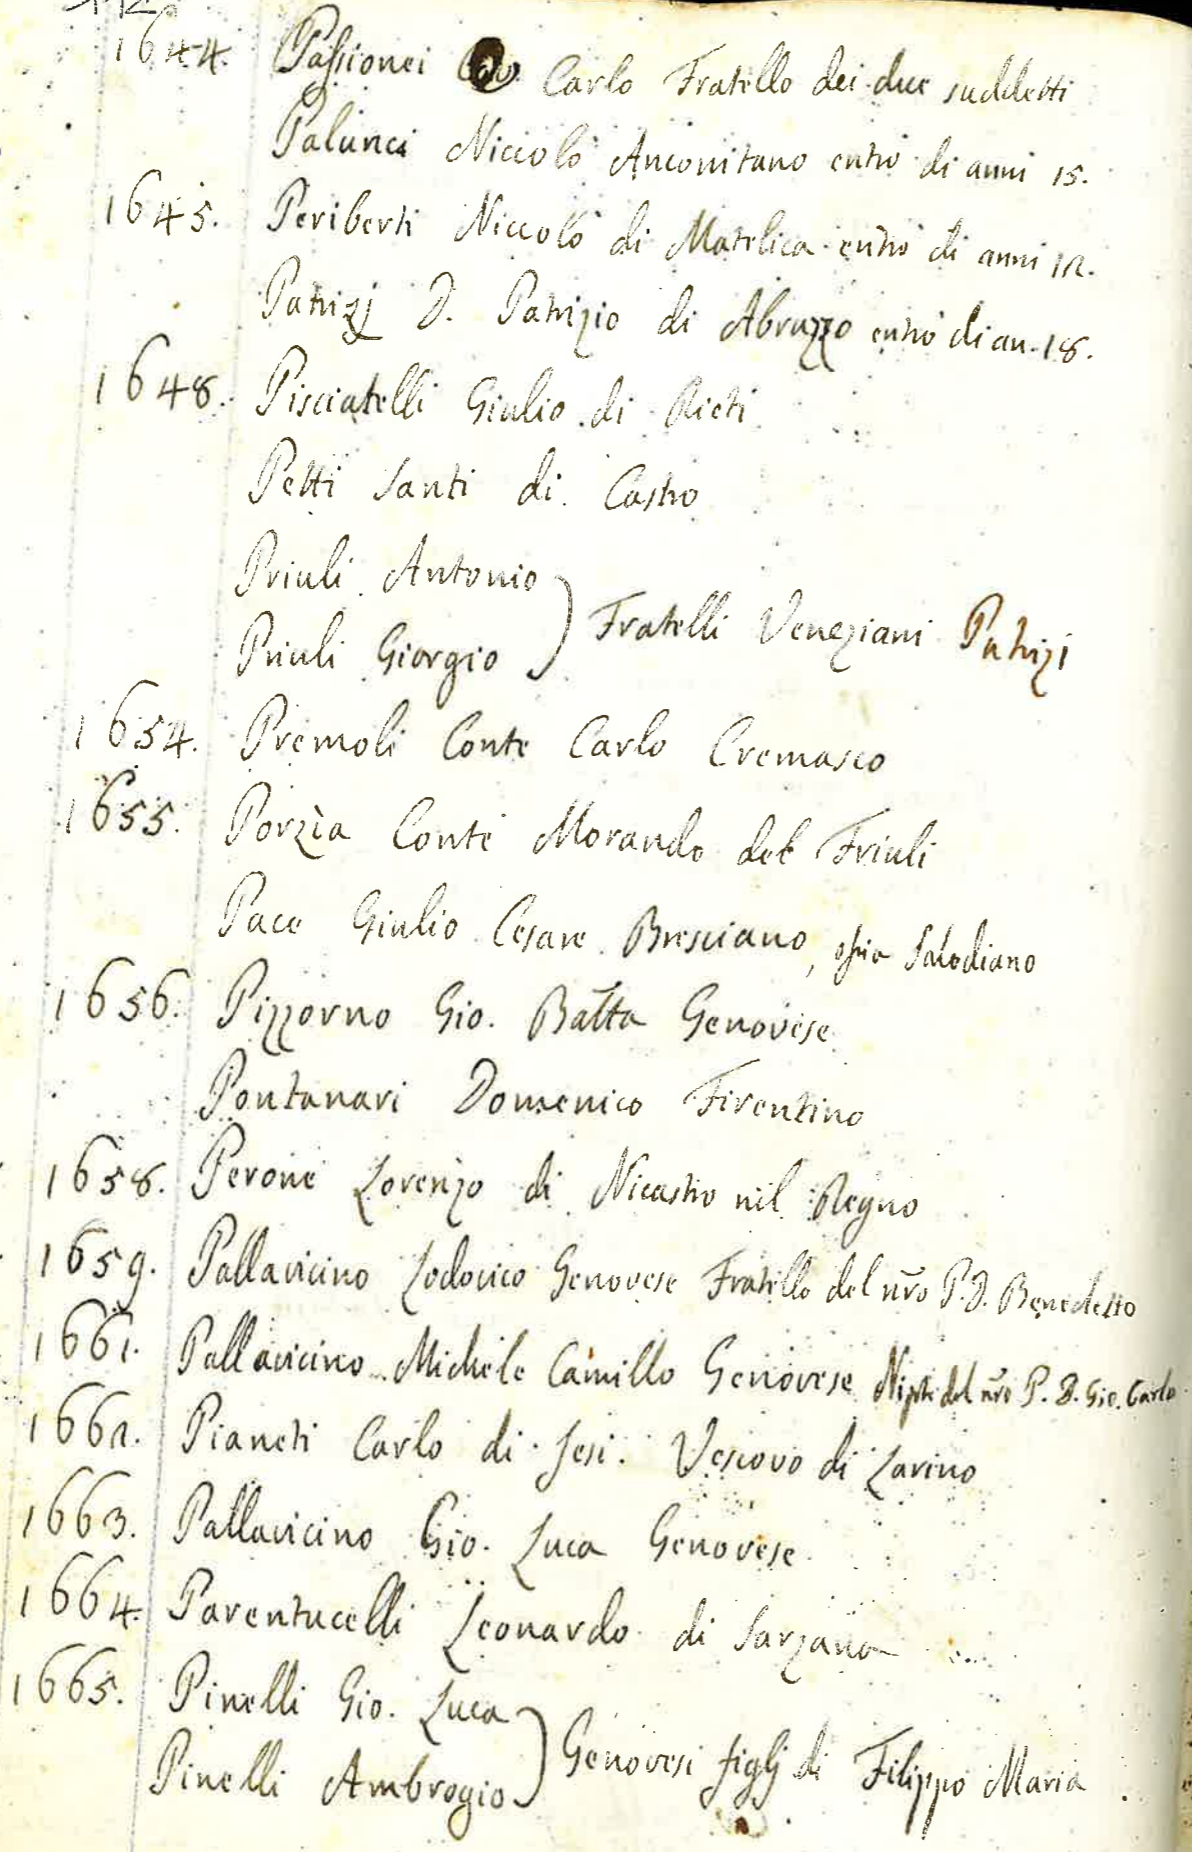 1644. Passionei Carlo Fratello dei due suddetti
Palunci Niccolò Anconitano entrò di anni 15.
1645. Periberti Niccolò di Matelica entrò di anni 12.
Patrizj D. Patrizio di Abruzzo entrò di an. 18.
1648. Pisciatelli Giulio di Rieti
Petti Santi di Castro
Priuli Antonio
Priuli Giorgio ) Fratelli Veneziani Patrizi
1654. Premoli Conte Carlo Cremasco
1655. Porzìa Conte Morando del Friuli
Pace Giulio Cesare Bresciano, ossia Salodiano
1656. Pizzorno Gio. Batta Genovese
Pontanari Domenico Firentino
1658. Perone Lorenzo di Nicastro nel Regno
1659. Pallavicino Lodovico Genovese Fratello del nro P. D. Benedetto
1661. Pallavicino Michele Camillo Genovese Nipote del nro P. D. Gio. Carlo
1662. Pianeti Carlo di Jesi. Vescovo di Larino
1663. Pallavicino Gio. Luca Genovese
1664. Parentucelli Leonardo di Sarzana
1665. Pinelli Gio. Luca
Pinelli Ambrogio ) Genovesi figlj di Filippo Maria